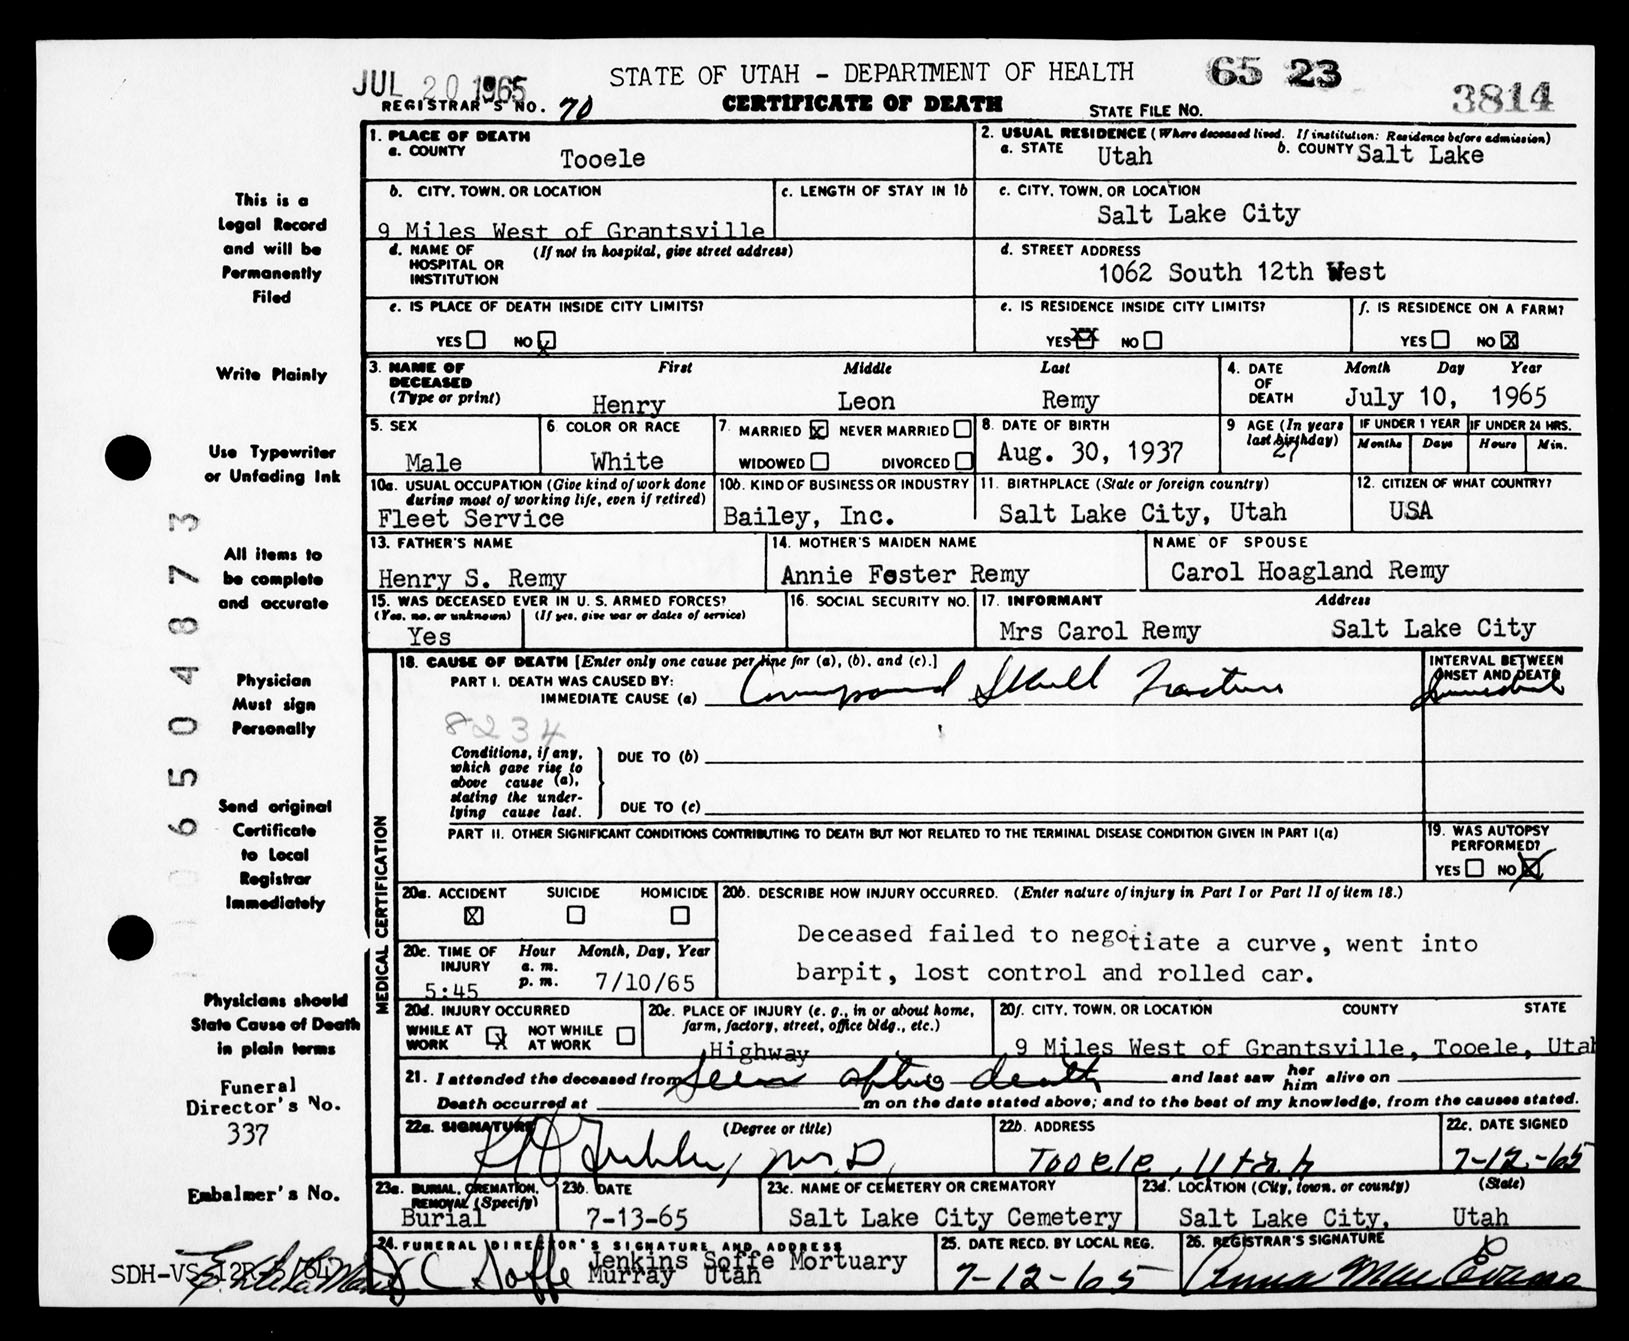 JUL 20 1965
STATE OF UTAH - DEPARTMENT OF HEALTH
65 23
3814
REGISTRAR'S NO. 70
CERTIFICATE OF DEATH
STATE FILE NO.
This is a
Legal Record
and will be
Permanently
Filed
Write Plainly
Use Typewriter
or Unfading Ink
All items to
be complete
and accurate
Physician
Must sign
Personally
Send original
Certificate
to Local
Registrar
Immediately
Physicians should
State Cause of Death
in plain terms
Funeral
Director's No.
337
Embalmer's No.
06504873
1. PLACE OF DEATH
a. COUNTY
Tooele
2. USUAL RESIDENCE (Where deceased lived. If institution: Residence before admission)
a. STATE Utah
b. COUNTY Salt Lake
b. CITY, TOWN, OR LOCATION
9 Miles West of Grantsville
c. LENGTH OF STAY IN 1b
c. CITY, TOWN, OR LOCATION
Salt Lake City
d. NAME OF HOSPITAL OR INSTITUTION
(If not in hospital, give street address)
d. STREET ADDRESS
1062 South 12th West
e. IS PLACE OF DEATH INSIDE CITY LIMITS?
YES NO X
e. IS RESIDENCE INSIDE CITY LIMITS?
YES XX NO
f. IS RESIDENCE ON A FARM?
YES NO X
3. NAME OF DECEASED
(Type or print)
First Middle Last
Henry Leon Remy
4. DATE OF DEATH
Month Day Year
July 10, 1965
5. SEX
Male
6. COLOR OR RACE
White
7. MARRIED X NEVER MARRIED
WIDOWED DIVORCED
8. DATE OF BIRTH
Aug. 30, 1937
9 AGE (In years last birthday)
27
IF UNDER 1 YEAR
Months Days
IF UNDER 24 HRS.
Hours Min.
10a. USUAL OCCUPATION (Give kind of work done
during most of working life, even if retired)
Fleet Service
10b. KIND OF BUSINESS OR INDUSTRY
Bailey, Inc.
11. BIRTHPLACE (State or foreign country)
Salt Lake City, Utah
12. CITIZEN OF WHAT COUNTRY?
USA
13. FATHER'S NAME
Henry S. Remy
14. MOTHER'S MAIDEN NAME
Annie Foster Remy
NAME OF SPOUSE
Carol Hoagland Remy
15. WAS DECEASED EVER IN U. S. ARMED FORCES?
(Yes, no, or unknown) (If yes, give war or dates of service)
Yes
16. SOCIAL SECURITY NO.
17. INFORMANT Address
Mrs Carol Remy Salt Lake City
MEDICAL CERTIFICATION
18. CAUSE OF DEATH [Enter only one cause per line for (a), (b), and (c).]
PART I. DEATH WAS CAUSED BY:
IMMEDIATE CAUSE (a) Compound Skull Fracture
INTERVAL BETWEEN
ONSET AND DEATH
Immediate
8234
Conditions, if any,
which gave rise to
above cause (a),
stating the under-
lying cause last.
DUE TO (b)
DUE TO (c)
PART II. OTHER SIGNIFICANT CONDITIONS CONTRIBUTING TO DEATH BUT NOT RELATED TO THE TERMINAL DISEASE CONDITION GIVEN IN PART I(a)
19. WAS AUTOPSY
PERFORMED?
YES NO X
20a. ACCIDENT SUICIDE HOMICIDE
X
20b. DESCRIBE HOW INJURY OCCURRED. (Enter nature of injury in Part I or Part II of item 18.)
Deceased failed to negotiate a curve, went into
barpit, lost control and rolled car.
20c. TIME OF INJURY
Hour Month, Day, Year
a. m.
p. m.
5:45 7/10/65
20d. INJURY OCCURRED
WHILE AT WORK X NOT WHILE AT WORK
20e. PLACE OF INJURY (e. g., in or about home,
farm, factory, street, office bldg., etc.)
Highway
20f. CITY, TOWN, OR LOCATION COUNTY STATE
9 Miles West of Grantsville, Tooele, Utah
21. I attended the deceased from Seen after death and last saw her him alive on
Death occurred at m on the date stated above; and to the best of my knowledge, from the causes stated.
22a. SIGNATURE (Degree or title)
M.D.
22b. ADDRESS
Tooele, Utah
22c. DATE SIGNED
7-12-65
23a. BURIAL, CREMATION,
REMOVAL (Specify)
Burial
23b. DATE
7-13-65
23c. NAME OF CEMETERY OR CREMATORY
Salt Lake City Cemetery
23d. LOCATION (City, town, or county) (State)
Salt Lake City, Utah
24. FUNERAL DIRECTOR'S SIGNATURE AND ADDRESS
Jenkins Soffe Mortuary
Murray Utah
J C Soffe
25. DATE RECD. BY LOCAL REG.
7-12-65
26. REGISTRAR'S SIGNATURE
Anna Mae Evans
SDH-VS